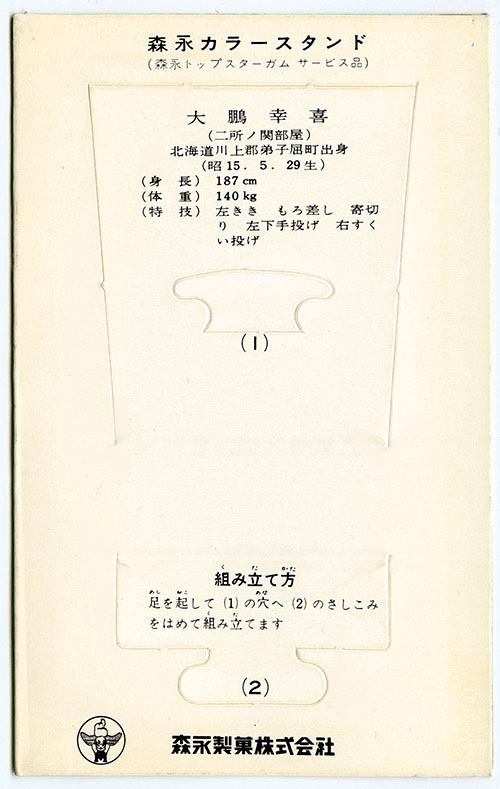 森永カラースタンド
(森永トップスターガム サービス品)
大鵬幸喜
(二所ノ関部屋)
北海道川上郡弟子屈町出身
(昭15．5．29生)
(身長) 187cm
(体重) 140kg
(特技) 左きき もろ差し 寄切
り 左下手投げ 右すく
い投げ
(1)
く た かた
組み立て方
あし おこ あな
足を起して (1) の穴へ (2) のさしこみ
く た
をはめて組み立てます
(2)
森永製菓株式会社